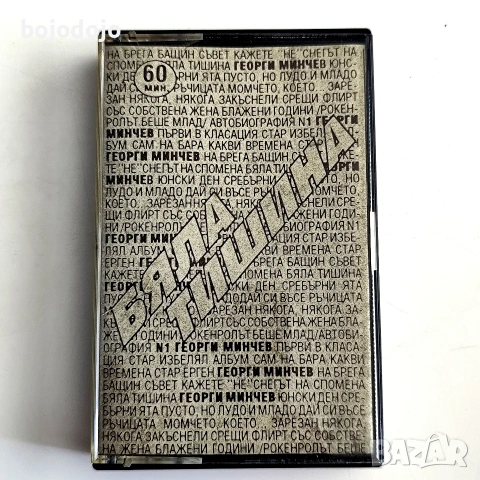 bojodojo
НА БРЕГА БАЩИН СЪВЕТ КАЖЕТЕ "НЕ" СНЕГЪТ НА
СПОМЕНА БЯЛА ТИШИНА ГЕОРГИ МИНЧЕВ ЮНС-
60 МИН.
КИ ДЕН СРЕБЪРНИ ЯТА ПУСТО, НО ЛУДО И МЛАДО
ДАЙ СИ ВЪСЕ РЪЧИЦАТА МОМЧЕТО, КОЕТО... ЗАРЕ-
ЗАН НЯКОГА, НЯКОГА ЗАКЪСНЕЛИ СРЕЩИ ФЛИРТ
СЪС СОБСТВЕНА ЖЕНА БЛАЖЕНИ ГОДИНИ /РОКЕН-
РОЛЪТ БЕШЕ МЛАД/ АВТОБИОГРАФИЯ N1 ГЕОРГИ
МИНЧЕВ ПЪРВИ В КЛАСАЦИЯ СТАР ИЗБЕЛЯЛ АЛ-
БУМ САМ НА БАРА КАКВИ ВРЕМЕНА СТАР
ГЕОРГИ МИНЧЕВ НА БРЕГА БАЩИН СЪВЕТ
ЖЕТЕ "НЕ" СНЕГЪТ НА СПОМЕНА БЯЛА ТИ
МИНЧЕВ ЮНСКИ ДЕН СРЕБЪРНИ
БЯЛА ТИШИНА
НО ЛУДО И МЛАДО ДАЙ СИ ВЪСЕ
КОЕТО... ЗАРЕЗАН НЯКОГА,
СРЕЩИ ФЛИРТ СЪС СОБСТВЕНА ЖЕНА БЛАЖЕНИ ГОДИ-
НИ /РОКЕНРОЛЪТ
ГЕОРГИ МИНЧЕВ
ЛЯЛ АЛБУМ САМ НА БАРА КАКВИ ВРЕМЕНА СТАР
ЕРГЕН ГЕОРГИ
КАЖЕТЕ БЯЛА ТИШИНА
ГЕОРГИ МИНЧЕВ ЮНСКИ ДЕН СРЕБЪРНИ ЯТА ПУСТО,
НО ЛУДО И МЛАДО ДАЙ СИ ВЪСЕ РЪЧИЦАТА
МОМЧЕТО, КОЕТО... ЗАРЕЗАН НЯКОГА, НЯКОГА
ЗАКЪСНЕЛИ СРЕЩИ ФЛИРТ СЪС СОБСТВЕНА ЖЕНА БЛА-
ЖЕНИ ГОДИНИ /РОКЕНРОЛЪТ БЕШЕ МЛАД/ АВТОБИО-
ГРАФИЯ N1 ГЕОРГИ МИНЧЕВ ПЪРВИ В КЛАСА-
ЦИЯ СТАР ИЗБЕЛЯЛ АЛБУМ САМ НА БАРА КАКВИ
ВРЕМЕНА СТАР ЕРГЕН ГЕОРГИ МИНЧЕВ НА БРЕГА
БАЩИН СЪВЕТ КАЖЕТЕ "НЕ" СНЕГЪТ НА СПОМЕНА
БЯЛА ТИШИНА ГЕОРГИ МИНЧЕВ ЮНСКИ ДЕН СРЕ-
БЪРНИ ЯТА ПУСТО, НО ЛУДО И МЛАДО ДАЙ СИ ВЪСЕ
РЪЧИЦАТА МОМЧЕТО, КОЕТО... ЗАРЕЗАН НЯКОГА,
НЯКОГА ЗАКЪСНЕЛИ СРЕЩИ ФЛИРТ СЪС СОБСТВЕ-
НА ЖЕНА БЛАЖЕНИ ГОДИНИ /РОКЕНРОЛЪТ БЕШЕ
БАЗАР